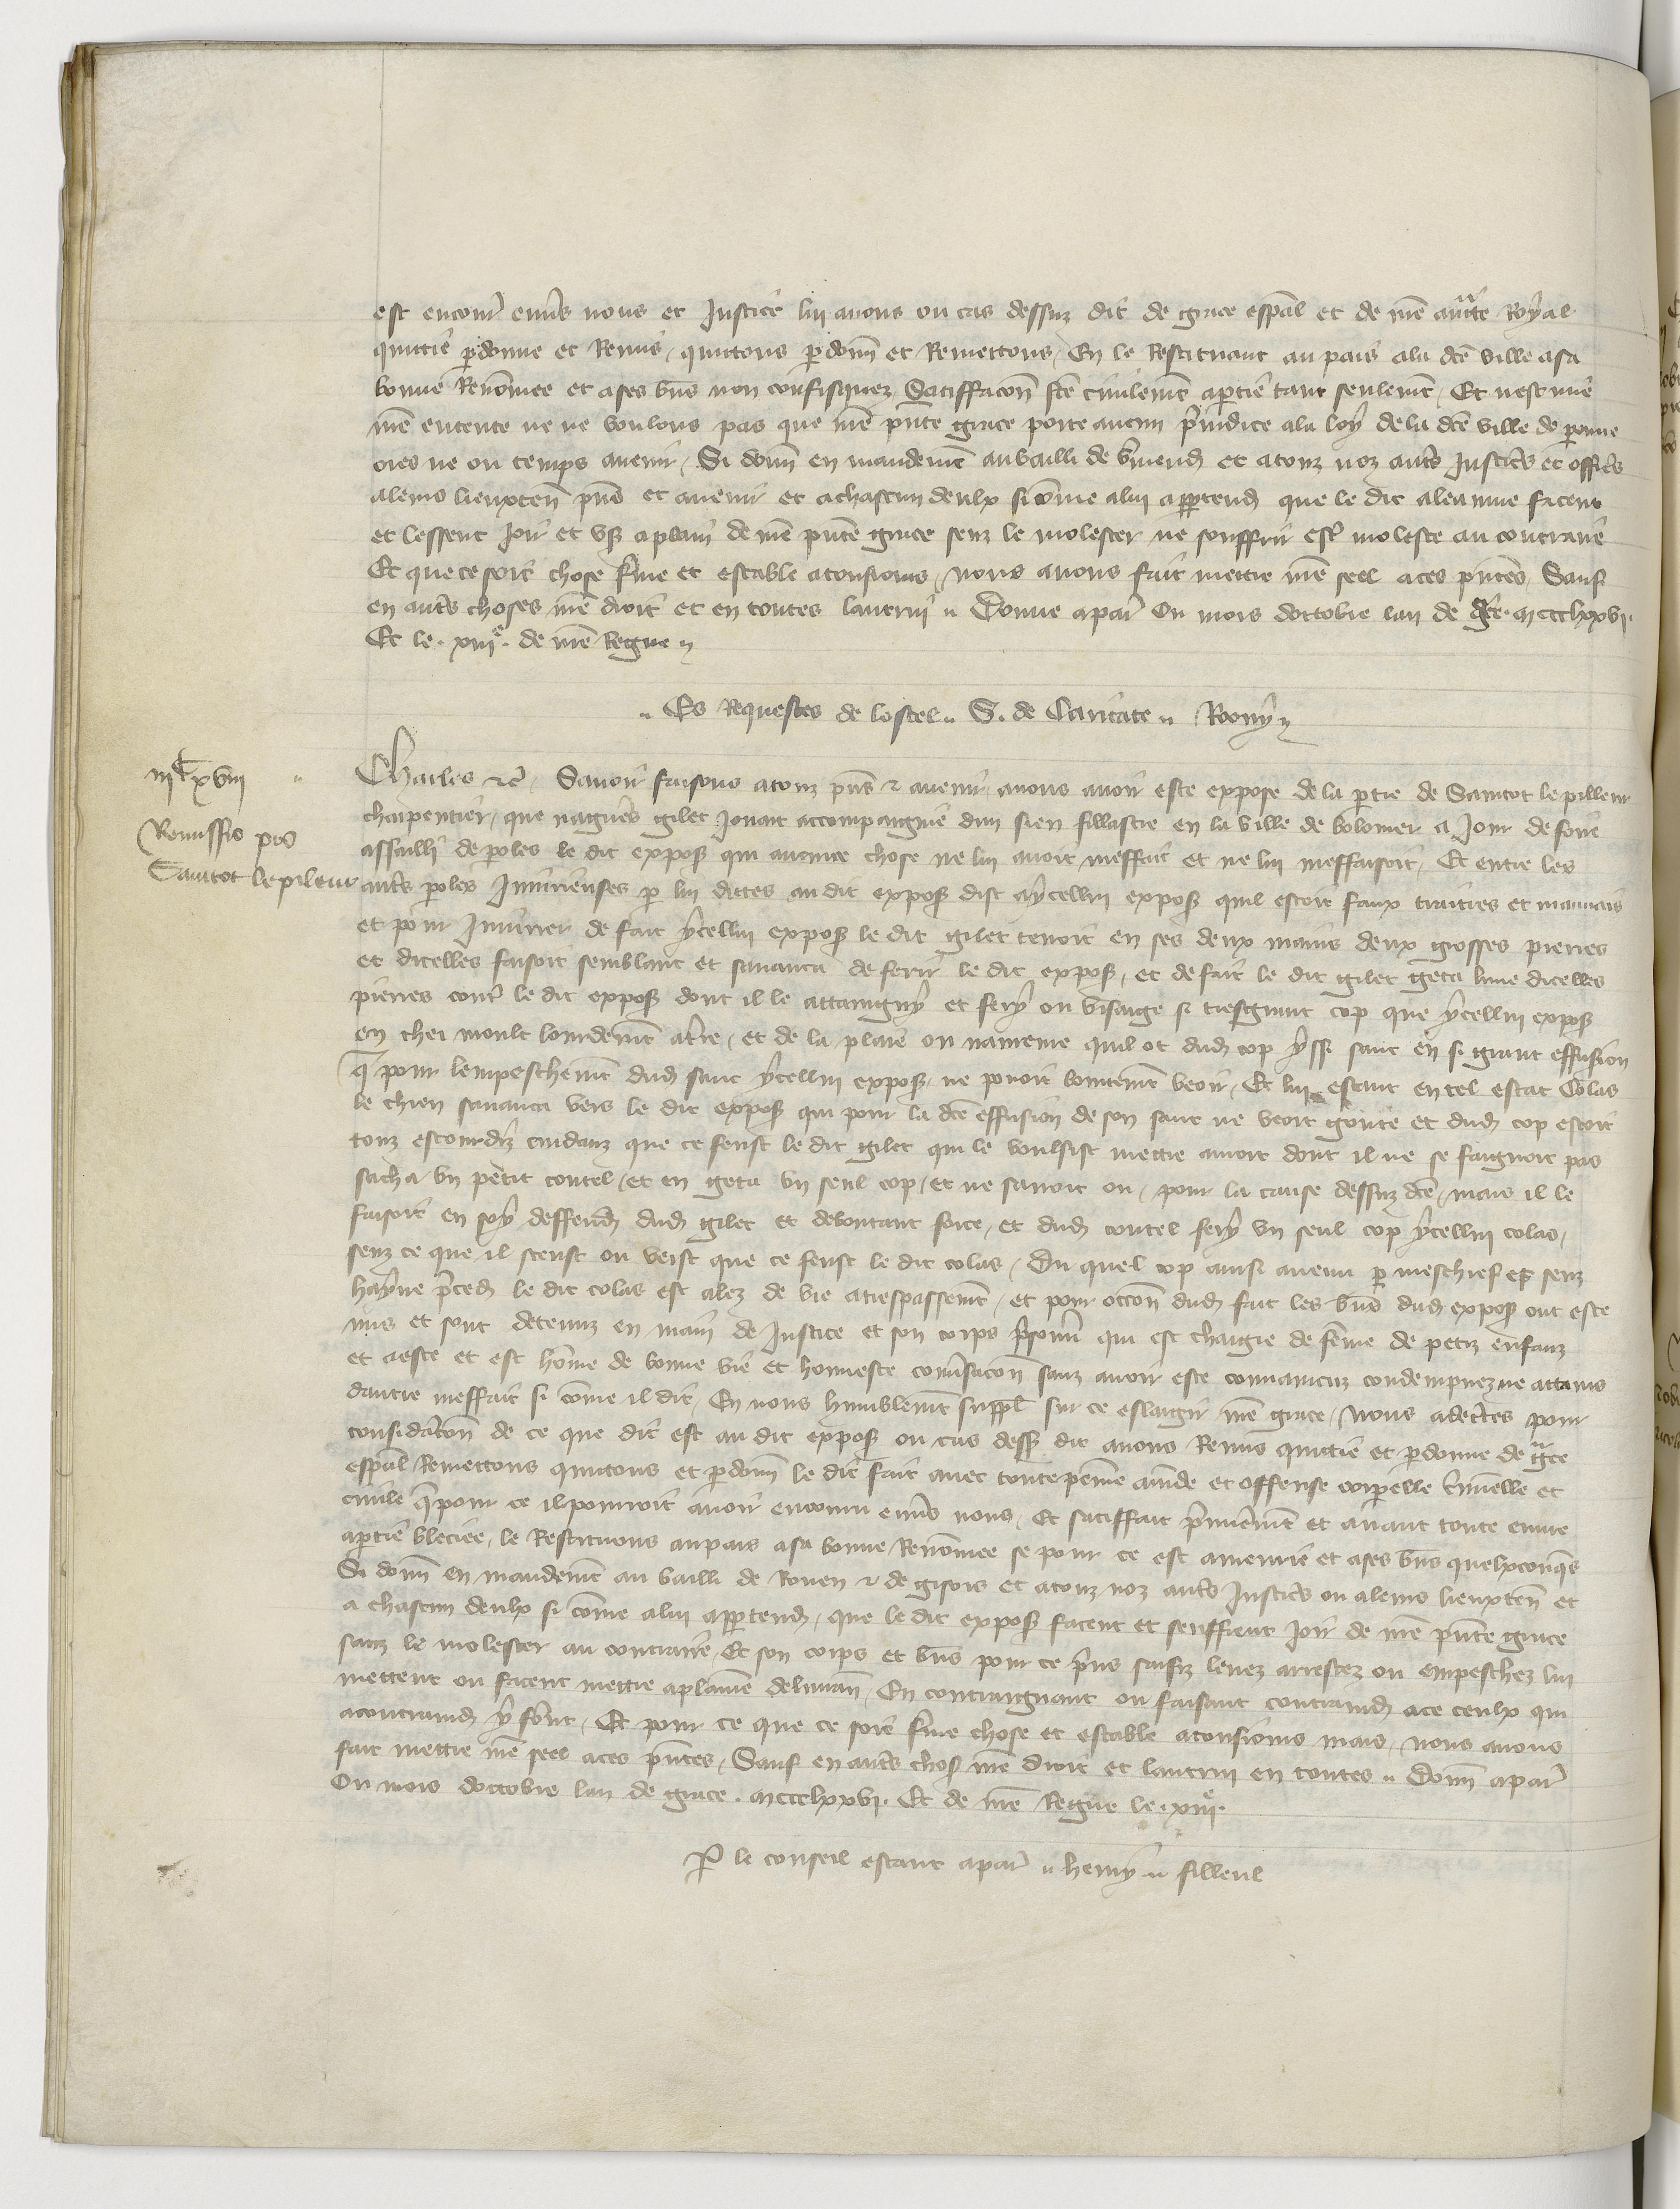 est encour envs nous et Justice lui avons ou cas dessuz dit de grace espal et de nre auctte Royal
quittie pdonne et Remis, quittons pdonn et Remettons, En le Restituant au pais ala dce ville asa
bonne Renomee et ases bns non confisquez, Satiffacon fce civilemt aptie tant seulemt, Et nest mie
nre entente ne ne voulons pas que nre pnte grace porte aucun priudice ala loy dela dce ville de peronne
ores ne ou temps avenir, Si donn en mandemt aubailli de vermend et atouz noz auts Justicrs et officrs
alemo lieuxten pns et avenir et achascun deulx si come alui appartend que le dit aleaume facent
et lessent Joir et vser aplain de nre pnte grace senz le molester ne souffrir estre moleste au contraire
Et que ce soit chose ferme et estable atousiours, nous avons fait mettre nre seel aces pntes, Sauf
en auts choses nre droit et en toutes lautrui, Donne a par Ou mois dottobre lan de gce. mccclxxvi.
Et le. xiiie. de nre Regne
Es Requestes de lostel, S. de Caritate, Roony
iiiC xviii
Charles etc. Savoir faisons atouz pns et avenir, avons avoir este expose de la ptie de Santot lepilleur
charpentier, que nagures gilet Jouait accompaigne dun sien fillastre en la ville de bolomer a Jour de foire
Remissio pro
assailli de paroles le dit expos qui aucune chose ne lui avoit meffait et ne lui meffaisoit, Et entre les
Santot lepileur
auts paroles Iniurieuses p lui dictes au dit expos dist aycellui expos quil estoit faux traitres et mauvais
et pour Iniurier de fait ycellui expos le dit gilet tenoit en ses deux mains deux grosses pierres
et dicelles faisoit semblant et savanca de ferir le dit expos, et de fait le dit gilet geta lune dicelles
pierres contre le dit expos dont il le attaingny et fery ou visaige si tresgrant cop que ycellui expos
en chei moult lourdemt atre, et de la plaie ou navreure quil ot dud cop yssi sanc en si grant effusion
q pour lempeschemt dud sanc ycellui expos ne povoit bonnemt veoir, Et lui estant en tel estat Colas
le chien savanca vers le dit expos qui pour la dce effusion de son sanc ne veoit goute et dud cop estoit
touz estourdiz cuidanz que ce feust le dit gilet qui le voulsist mettre amort dont il ne se faignoit pas
sacha vn petit coutel, et en geta vn seul cop, et ne savoit ou, pour la cause dessuz dce, mais il le
faisoit en soy deffend dud gilet et deboutant force, et dud coutel fery vn seul cop ycellui colas,
senz ce que il sceust ou veist que ce feust le dit colas, Du quel cop ainsi avenu p meschief et senz
hayne preced le dit colas est alez de vie atrespassemt, et pour occon dud fait les bns dud expos ont este
mis et sont detenuz en main de Justice et son corps prisonn qui est chargie de feme de petiz enfanz
et a este et est home de bonne vie et honneste convsacon sanz avoir este convaincuz condempnez ne attains
dautre meffait si come il dit, En nous humblemt suppl sur ce eslargir nre grace, Nous adctes pour
consideracon de ce que dit est au dit expos ou cas dess dit avons Remis quittie et pdonne de gce
espal Remettons quittons et pdonn le dit fait avec toute peinne amde et offense corporelle criminelle et
civile q pour ce il pourroit avoir encouru envs nous, Et satiffait premierement et avant toute euvre
aptie bleciee, le Restituons aupais asa bonne Renomee se pour ce est amenrie et ases bns quelxconqs
Si donn en mandemt au bailli de Rouen et de gisors et atouz noz auts Justicrs ou alemo lieuxten et
a chascun deulx si come alui appartend, que le dit expos facent et seuffrent Joir de nre pnte grace
sanz le molester au contraire, Et son corps et bns pour ce prins saisiz levez arrestez ou empeschez lui
mettent ou facent mettre aplaine delivran, En contraignant ou faisant contraind ace ceulx qui
acontraind y seront, Et pour ce que ce soit ferme chose et estable atousiours mais, nous avons
fait mettre nre seel aces pntes, Sauf en auts chos nre droit et lautrui en toutes, Donn a par
Ou mois dottobre lan de grace. mccclxxvi. Et de nre Regne le. xiiie.
P le conseil estant apar, henry, filleul